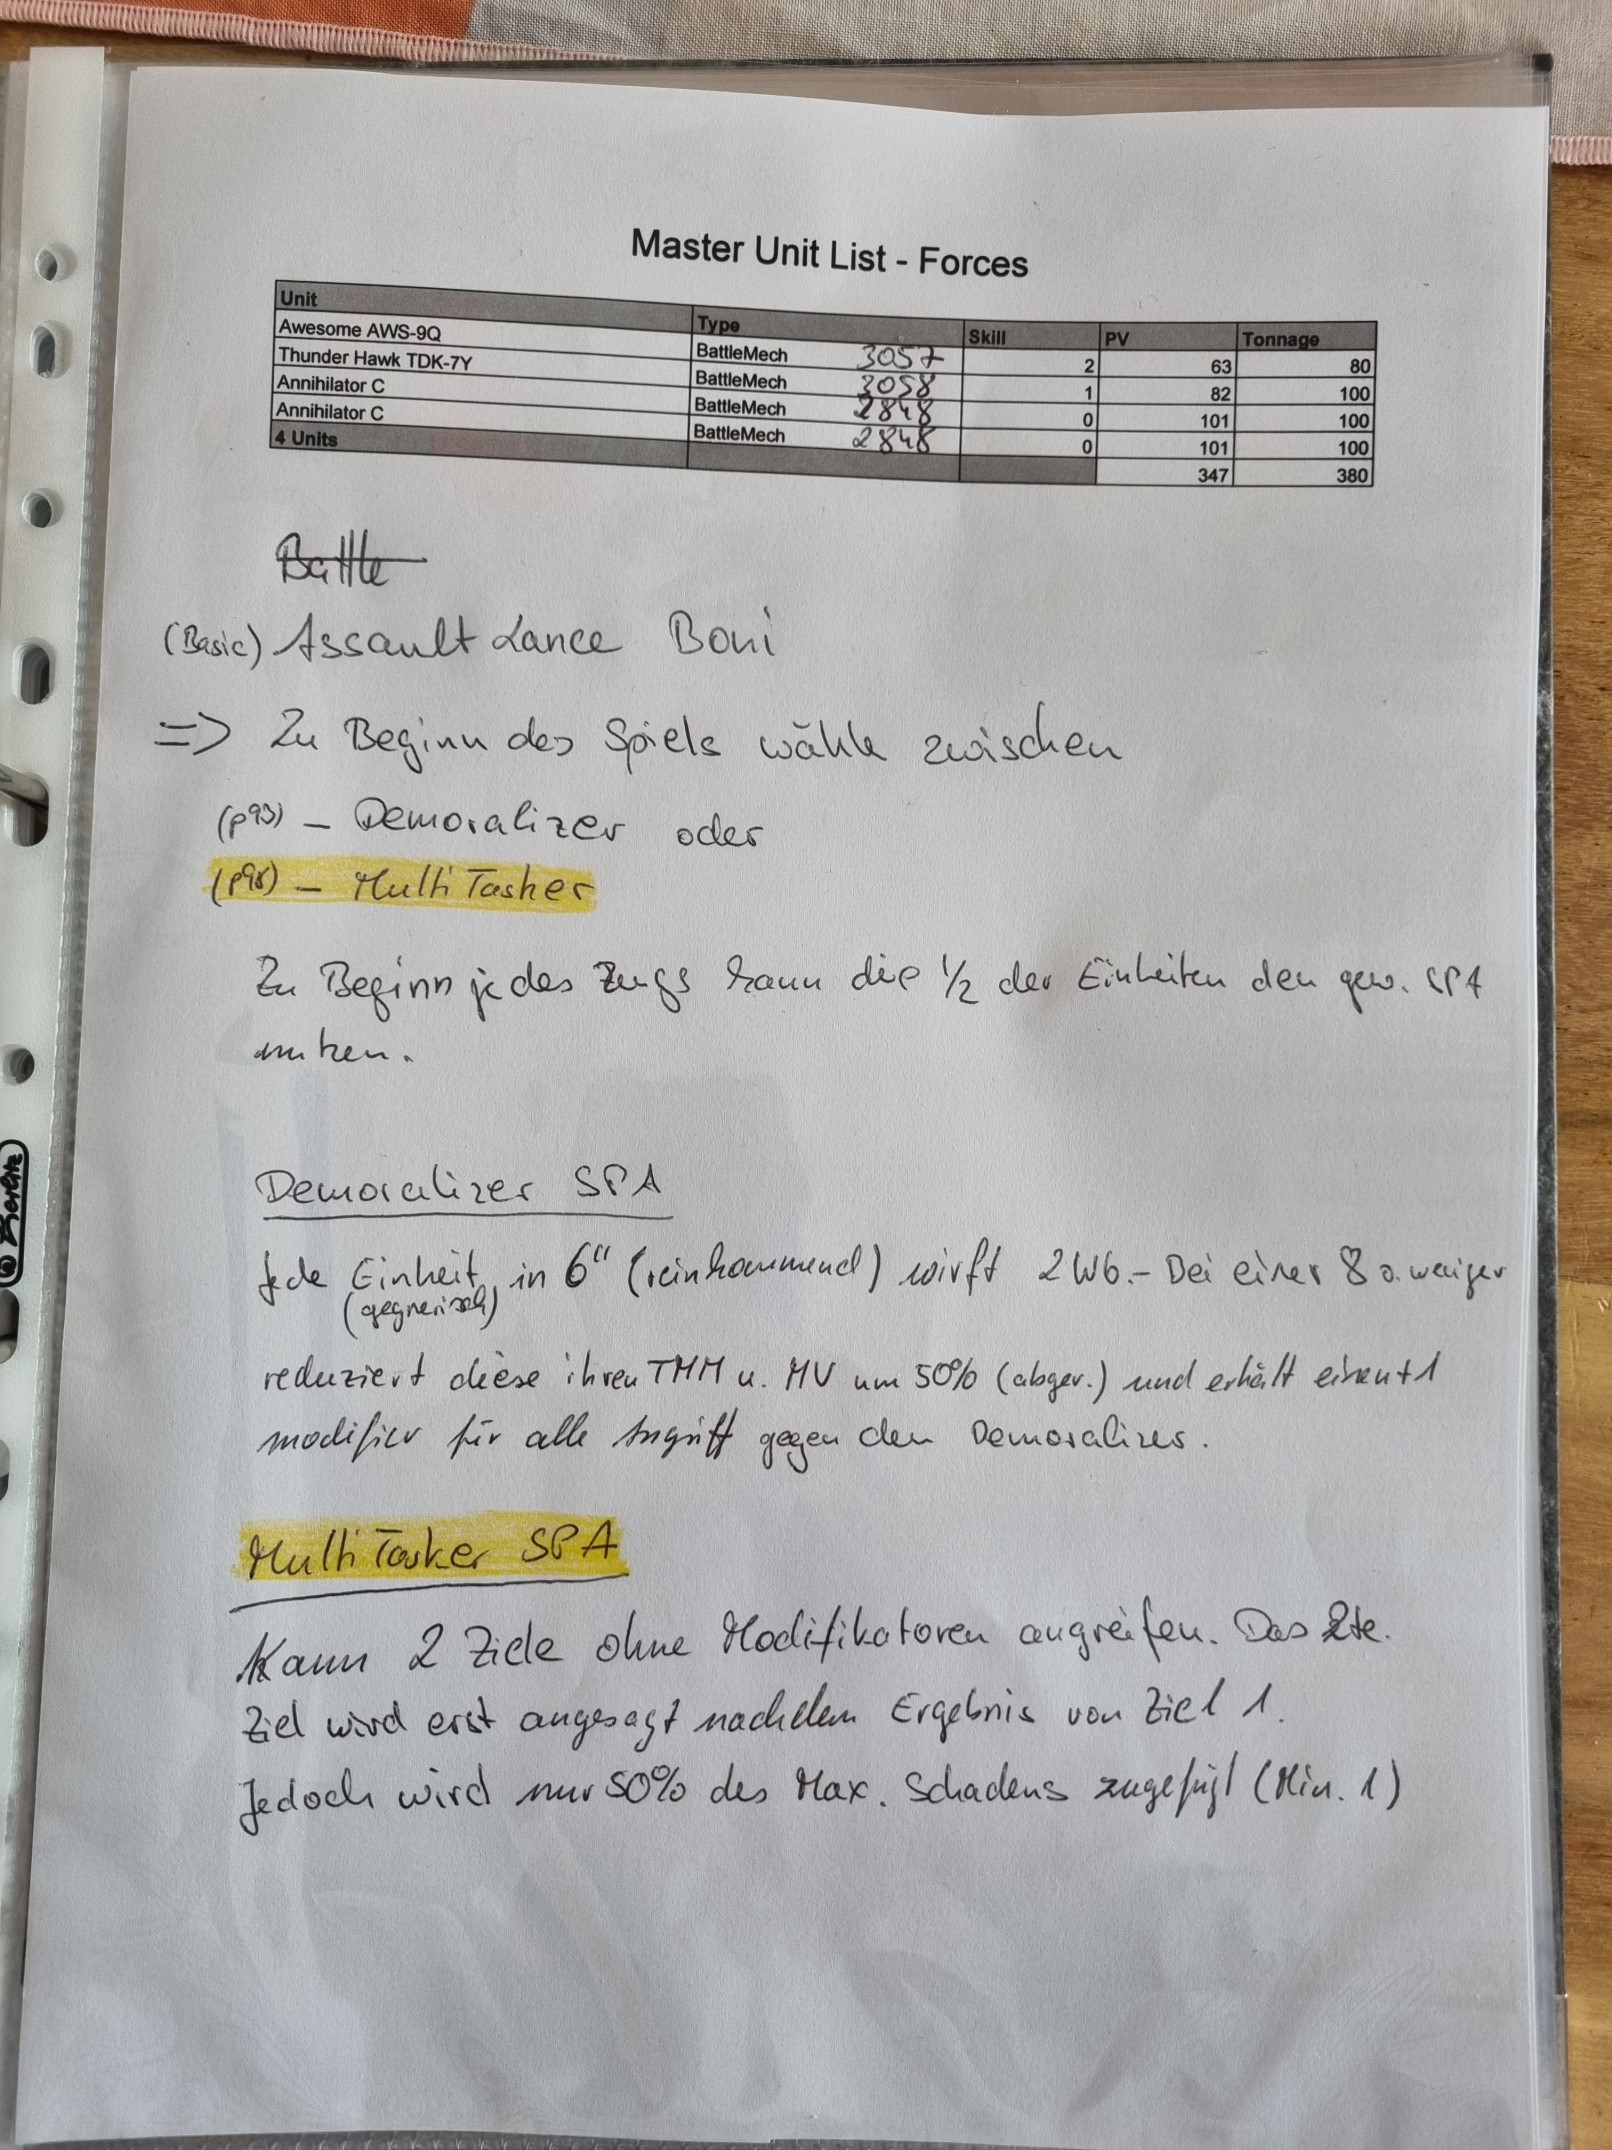 Master Unit List - Forces
Unit Type Skill PV Tonnage
Awesome AWS-9Q BattleMech 3057 2 63 80
Thunder Hawk TDK-7Y BattleMech 3058 1 82 100
Annihilator C BattleMech 2848 0 101 100
Annihilator C BattleMech 2848 0 101 100
4 Units 347 380
Battle
(Basic) Assault Lance Boni
=> Zu Beginn des Spiels wähle zwischen
(p93) - Demoralizer oder
(p98) - Multi Tasker
Zu Beginn jedes Zugs kann die 1/2 der Einheiten den gew. SPA
nutzen.
Demoralizer SPA
Jede Einheit in 6" (reinkommend) wirft 2W6.- Bei einer 8 o. weniger
(gegnerisch)
reduziert diese ihren TMM u. MV um 50% (abger.) und erhält einen +1
modifier für alle Angriff gegen den Demoralizer.
Multi Tasker SPA
Kann 2 Ziele ohne Modifikatoren angreifen. Das 2te.
Ziel wird erst angesagt nachdem Ergebnis von Ziel 1.
Jedoch wird nur 50% des Max. Schadens zugefügt (Min. 1)